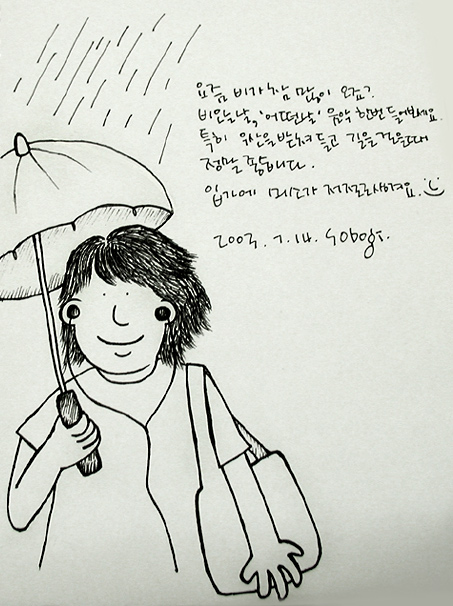 요즘 비가 참 많이 오죠?
비오는날, '어떤날' 음악 한번 들어보세요.
특히 우산을 받쳐 들고 길을 걸을때
정말 좋습니다.
입가에 미소가 저절로 생겨요.
7.14.